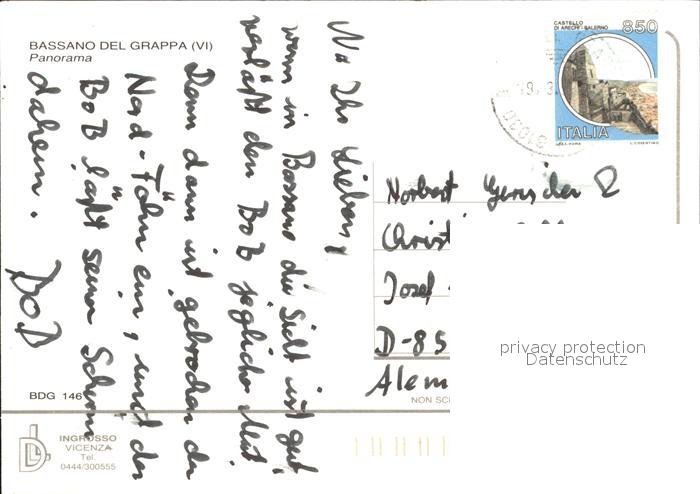 BASSANO DEL GRAPPA (VI)
Panorama
Na Ihr Lieben,
wenn in Bassano die Sicht ist gut
verläßt den BoB jeglicher Mut
Denn dann ist gebrochen der
Nord-Föhn ein, und der
BoB läßt seinen Schirm
daheim. BoB
BDG 146
INGROSSO
VICENZA
Tel.
0444/300555
CASTELLO
DI ARECHI - SALERNO
850
ITALIA
Norbert
Christ
Josef
D-85
Alem
NON SC
privacy protection
Datenschutz